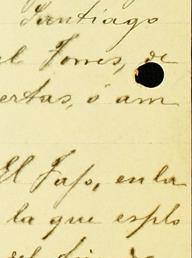 Santiago
el Torres, de
ertas, ó am
El Tajo, en la
la que esplo